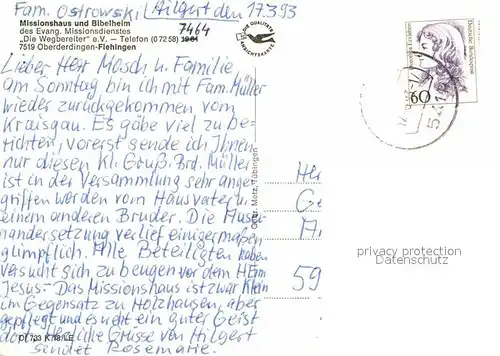 Fam. Ostrowski, Hilgert den 17.3.93
Missionshaus und Bibelheim
des Evang. Missionsdienstes 7464
„Die Wegbereiter“ e.V. – Telefon (0 72 58)
7519 Oberderdingen-Flehingen
GUTE QUALITÄT
ANSICHTSKARTE
Lieber Herr Mosch u. Familie,
am Sonntag bin ich mit Fam. Müller
wieder zurückgekommen vom
Kraisgau. Es gäbe viel zu be-
richten, vorerst sende ich Ihnen
nur diesen kl. Gruß. Brd. Müller
ist in der Versammlung sehr ange-
griffen worden vom Hausvater u.
einem anderen Bruder. Die Ausei-
nandersetzung verlief einigermaßen
glimpflich. Alle Beteiligten haben
versucht sich zu beugen vor dem HErrn
Jesus- Das Missionshaus ist zwar klein
im Gegensatz zu Holzhausen, aber
gepflegt und es weht ein guter Geist
dort. Herzliche Grüsse von Hilgert
sendet Rosemarie.
Metz, Tübingen
Deutsche Bundespost
60
59
privacy protection
Datenschutz